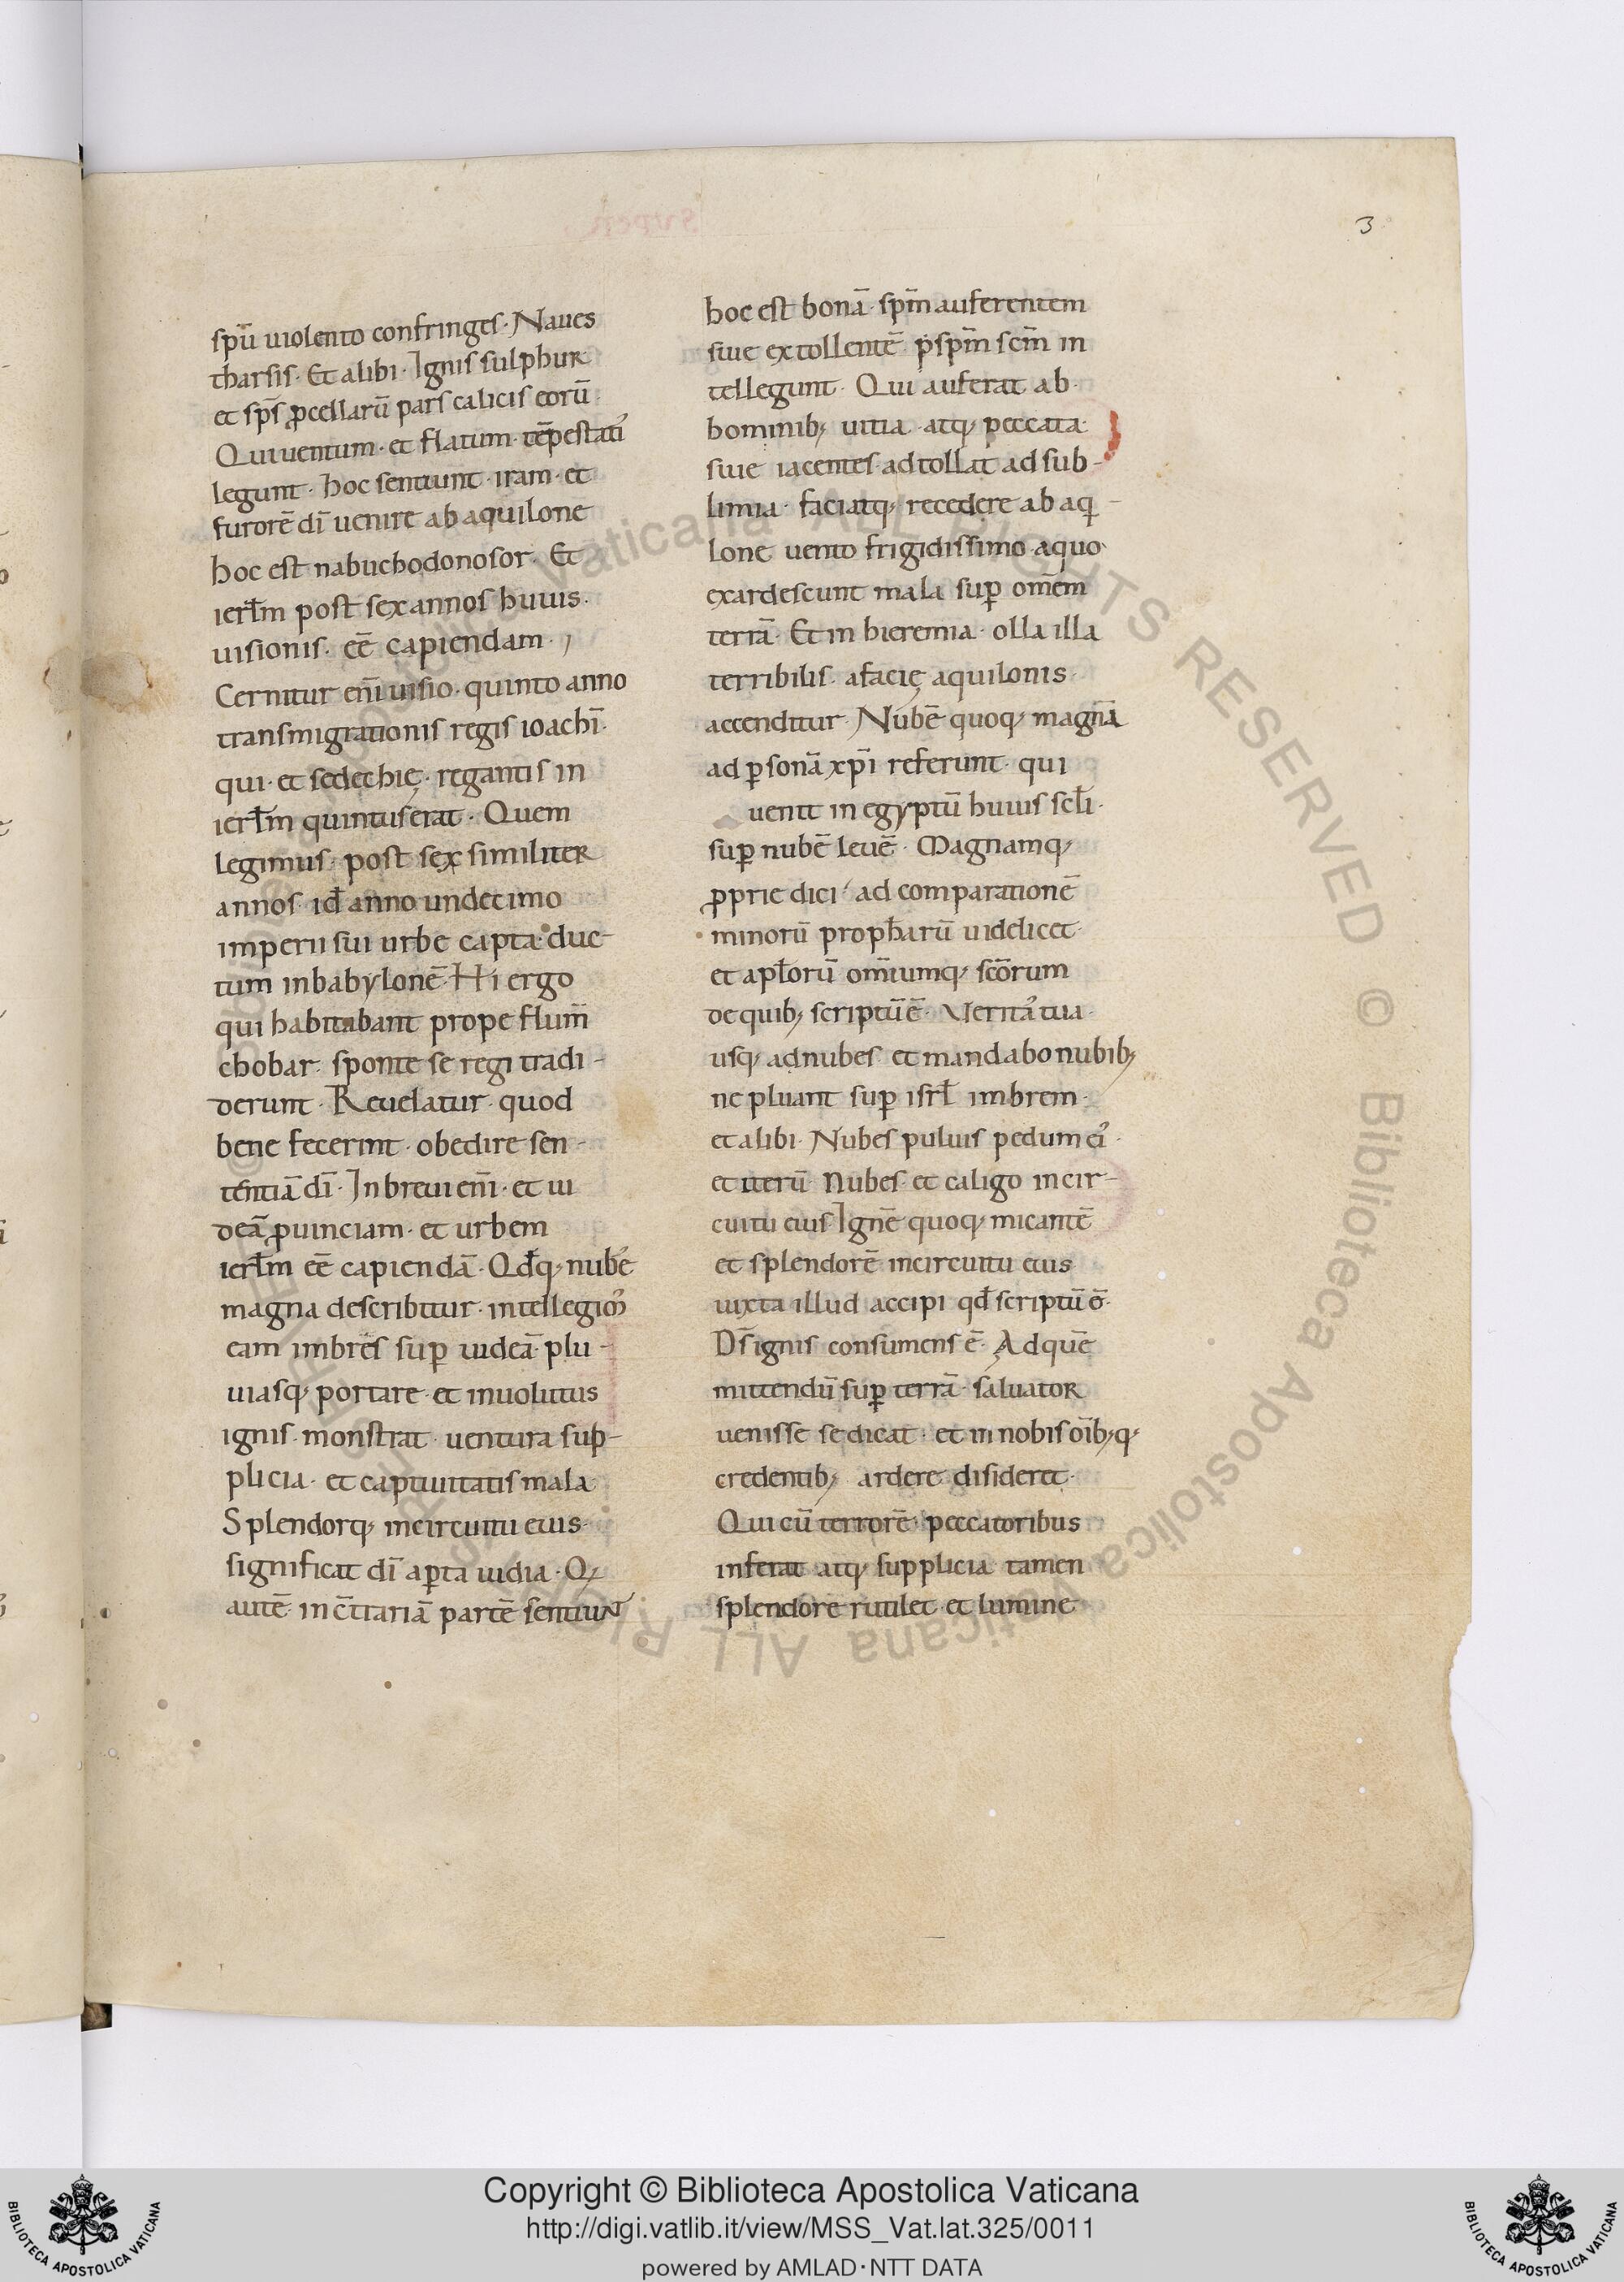 3
spū uiolento confringes · Naues
tharsis · Et alibi · Ignis sulphur
et sp̄s ꝓcellarū pars calicis eorū
Qui uentum · et flatum · tēpestatis
legunt · hoc sentiunt · iram · et
furorē dī uenire ab aquilone
hoc est nabuchodonosor · Et
ierl̄m post sex annos huius ·
uisionis · eē capiendam ·
Cernitur enī uisio · quinto anno
transmigrationis regis ioachī ·
qui · et sedechię · regantis in
ierl̄m quintus erat · Quem
legimus · post sex similiter
annos · id̄ anno undecimo
imperii sui urbe capta · duc-
tum in babylonē · Hi ergo
qui habitabant prope flum̄
chobar · sponte se regi tradi-
derunt · Reuelatur · quod
bene fecerint · obedire sen-
tentiā dī · In breui enī · et iu
deā ꝓuinciam · et urbem
ierl̄m eē capiendā · Qd̄q; nubē
magna describitur · intellegim᾽
eam imbrēs suꝑ iudeā · plu-
uiasq; portare · et inuolutus
ignis · monstrat · uentura sup-
plicia · et captiuitatis mala
Splendorq; in circuitu eius ·
significat dī aꝑta iudia · Q;
autē · in c̄trariā partē sentiunt
hoc est bonā · sp̄m auferentem
siue extollentē · ꝑ sp̄m scm̄ in
tellegunt · Qui auferat ab ·
hominib; uitia · atq; peccata ·
siue iacentes · adtollat ad sub-
limia · faciatq; recedere ab aq-
lone uento frigidissimo · a quo
exardescunt mala suꝑ om̄em
terrā · Et in hieremia · olla illa
terribilis · a facię aquilonis ·
accenditur · Nubē quoq; magnā
ad ꝑsonā xp̄i referunt · qui
uenit in egyptū huius scl̄i ·
suꝑ nubē leuē · Magnamq;
ꝓprie dici ad comparationē
minorū prophaꝛū uidelicet ·
et apl̄orū om̄iumq; scōrum
de quib; scriptū ē · Veritas tua ·
usq; ad nubes · et mandabo nubib;
ne pluant suꝑ isrl̄ imbrem ·
et alibi · Nubes puluis pedum ei᾽ ·
et iterū · Nubes · et caligo in cir-
cuitu eius Ignē quoq; micantē
et splendorē in circuitu eius
iuxta illud accipi qd̄ scriptū ē ·
Ds̄ ignis consumens ē · Ad quē
mittendū suꝑ terrā · saluator
uenisse se dicat · et in nobis oīb;q;
credentib; ardere disideret ·
Qui cū terrorē · peccatoribus
inferat · atq; supplicia · tamen
splendorē rutilet · et lumine ·
Copyright © Biblioteca Apostolica Vaticana
http://digi.vatlib.it/view/MSS_Vat.lat.325/0011
powered by AMLAD·NTT DATA